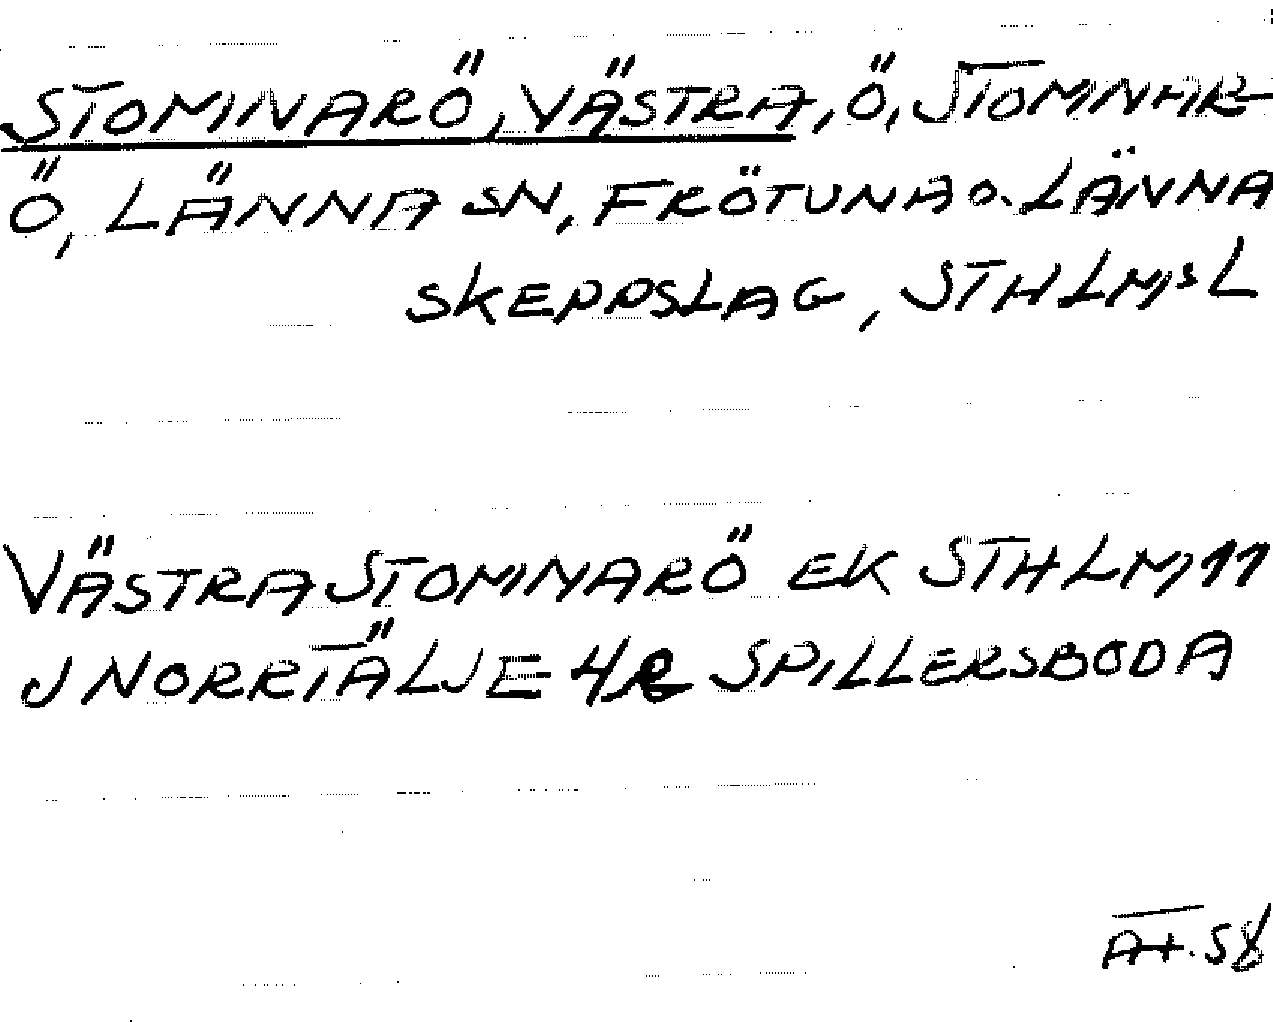 STOMINARÖ, VÄSTRA, Ö, STOMNAR-
Ö, LÄNNA SN, FRÖTUNA O. LÄNNA
SKEPPSLAG, STHLMS L
VÄSTRA STOMINARÖ EK STHLM 11
J NORRTÄLJE 4R SPILLERSBODA
AT. 58